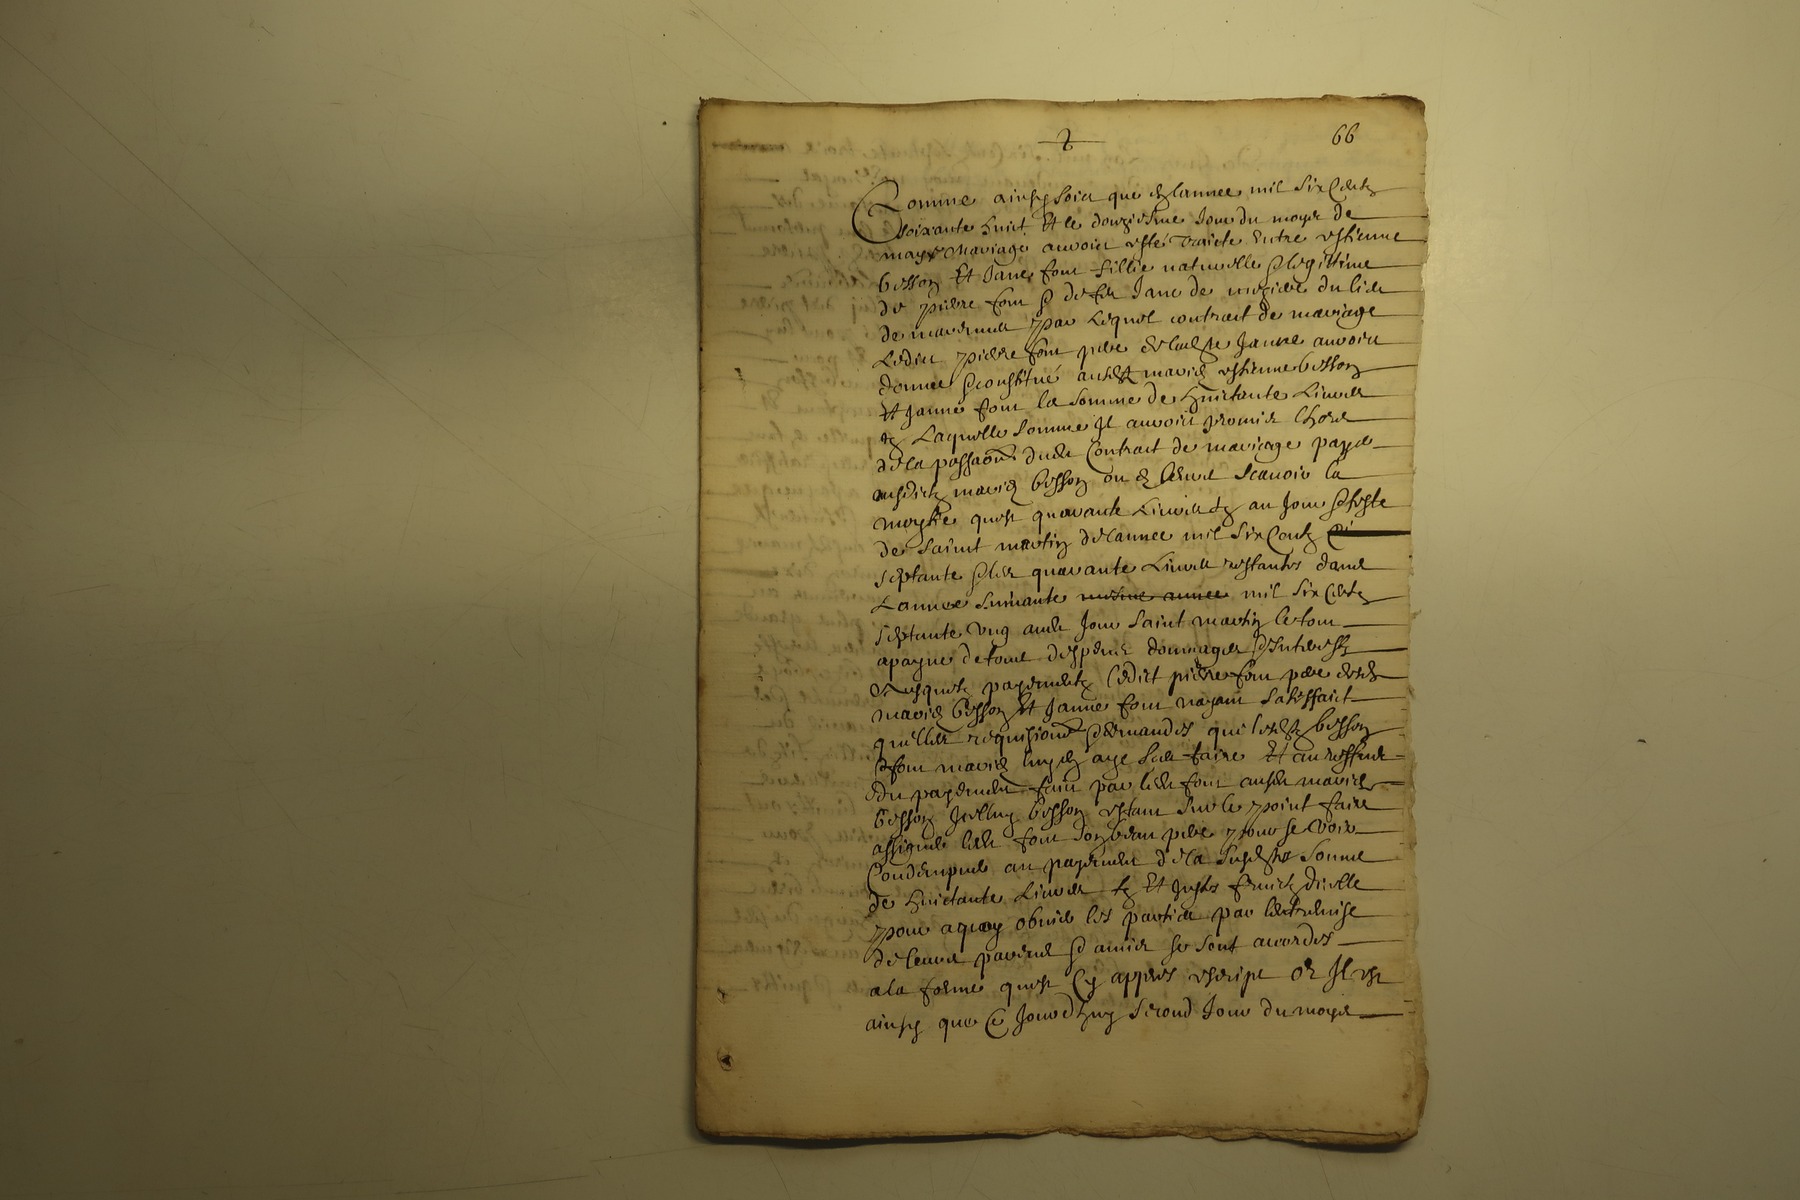 66
Comme ainsy soit que en lannee mil six centz
soixante huict Et le douziesme Jour du moys de
may Mariage auroit esté traicte Entre estienne
besson Et Jane four fillie naturelle & legittime
de pierre four & de feu Jane de du lieu
de par Lequel contrait de mariage
Ledict pierre four pere de ladte Janne auroit
donne & constitué ausdt mariés estienne besson
Et Janne four la somme de huictante Liures
tz Laquelle somme Jl auroit promis lhors
de la passaon dudt Contrait de mariage paye
ausdictz mariés besson ou es leurs scauoir la
moytie quest quarante Liures tz au Jour & feste
de saint martin de lannee mil six centz
septante & les quarante Liures restantes dans
Lannee suiuante mesme annee mil six centz
septante vng audt Jour saint martin le tout
a payne de tous despens dommages & Interestz
Ausquelz payementz ledict pierre four pere desdts
mariés besson Et Janne four nayant satisffaict
quelles requisions & demandes que lesdtz besson
& four mariés luy en aye sceu faire Et au reffus
du payement faire par ledt four ausdt mariés
besson Jcelluy besson estant sur le point faire
assigner ledt four son beau pere pour se voir
Condempner au payement de la susdtte somme
de huictante Liures tz Et Justes fruictz dicelle
pour a quoy obuier les parties par lentremise
de leurs parens & amis se sont accordés
a la forme quest Cy appres escript or Jl est
ainsy que Ce Jourdhuy second Jour du moys